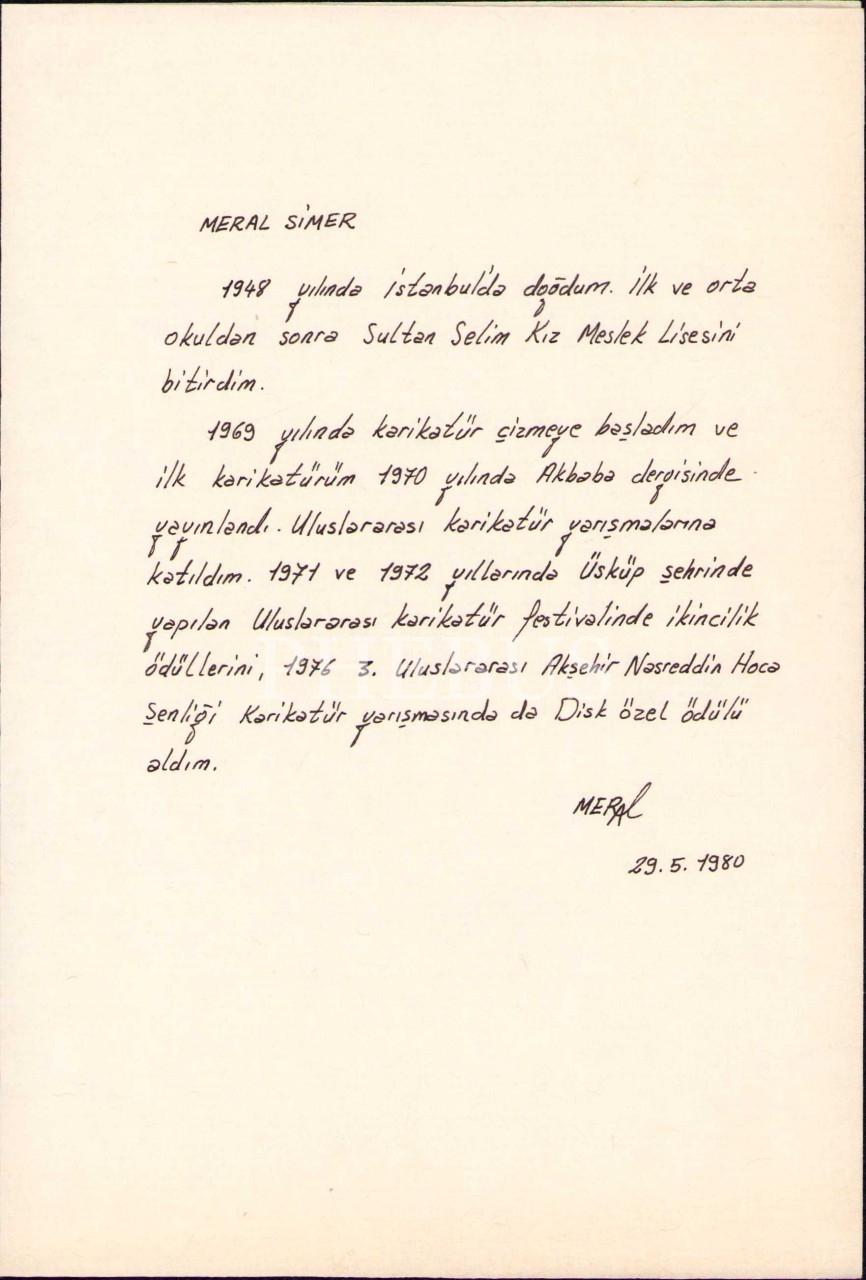 MERAL SİMER
1948 yılında İstanbul'da doğdum. İlk ve orta
okuldan sonra Sultan Selim Kız Meslek Lisesini
bitirdim.
1969 yılında karikatür çizmeye başladım ve
ilk karikatürüm 1970 yılında Akbaba dergisinde
yayınlandı. Uluslararası karikatür yarışmalarına
katıldım. 1971 ve 1972 yıllarında Üsküp şehrinde
yapılan Uluslararası karikatür festivalinde ikincilik
ödüllerini, 1976 3. Uluslararası Akşehir Nasreddin Hoca
Şenliği Karikatür yarışmasında da Disk özel ödülü
aldım.
MERAl
29.5.1980